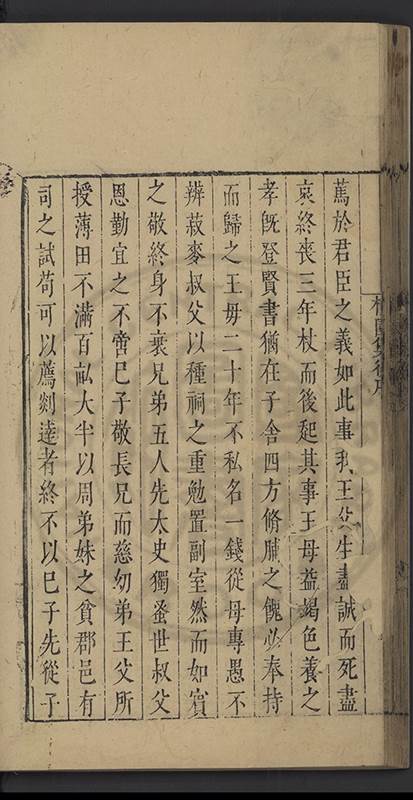 篤於君臣之義如此事我王父生盡誠而死盡
哀終喪三年杖而後起其事王母益竭色養之
孝旣登賢書猶在子舍四方脩脯之餽必奉持
而歸之王母二十年不私名一錢從母專愚不
辨菽麥叔父以種祠之重勉置副室然而如賓
之敬終身不衰兄弟五人先太史獨蚤世叔父
恩勤宜之不啻巳子敬長兄而慈幼弟王父所
授薄田不滿百畝大半以周弟妹之貧郡邑有
司之試苟可以薦剡達者終不以巳子先從子